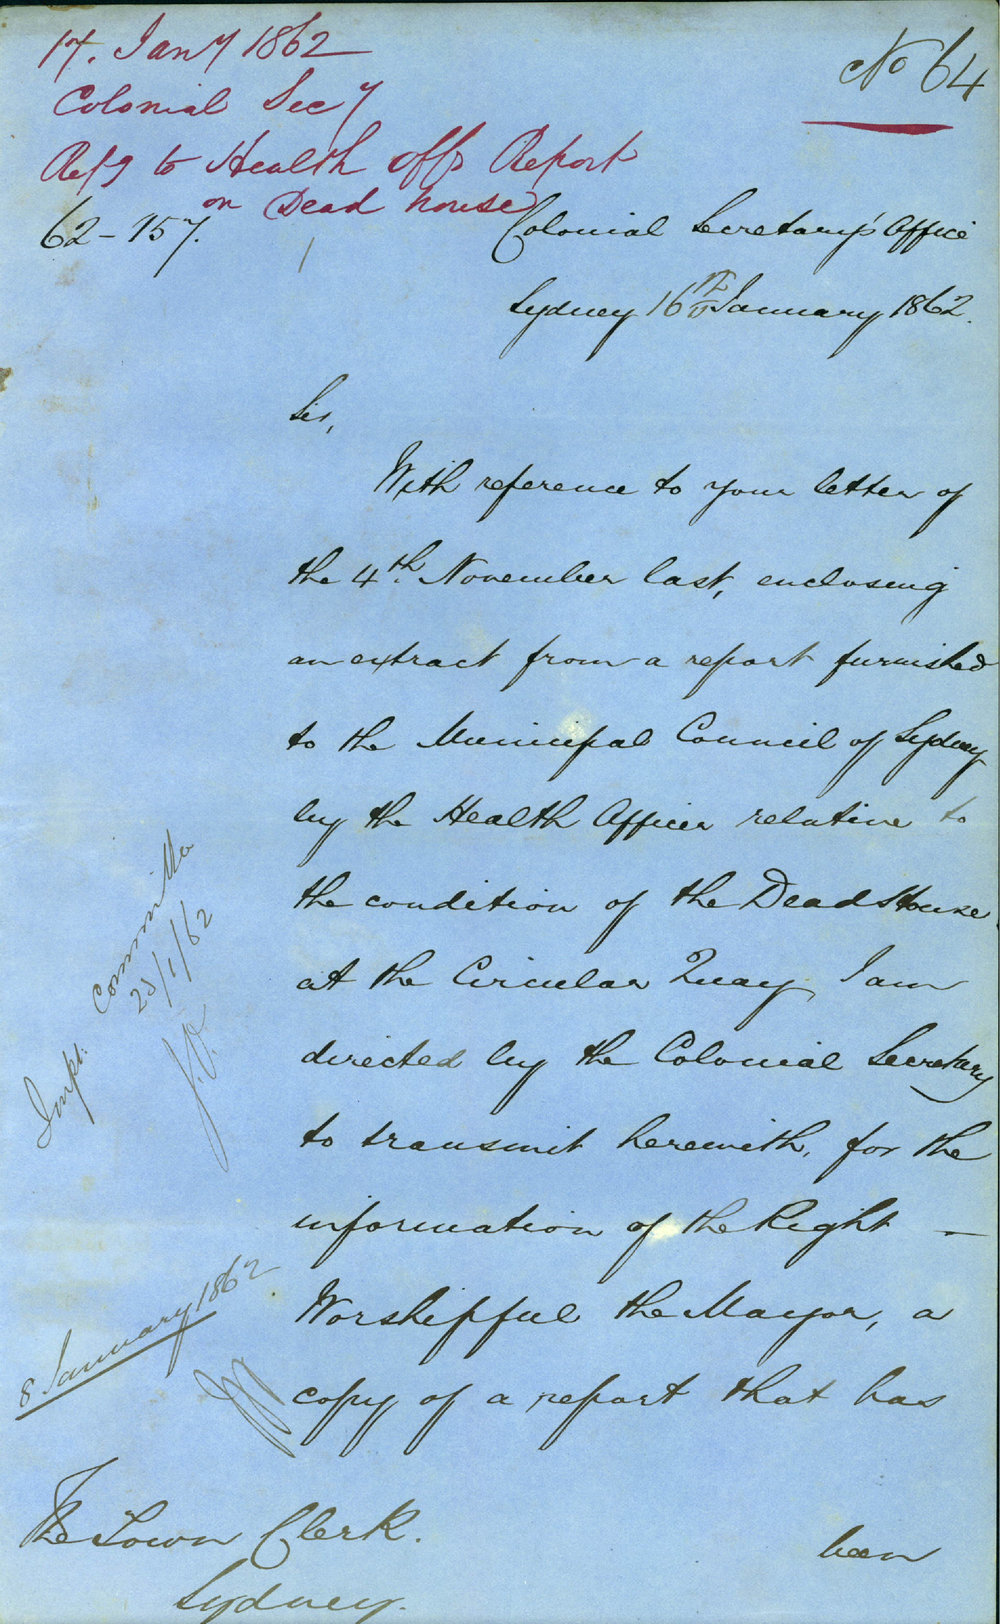 17. Jany 1862
Colonial Secy
Refg to Health offs Report
on Dead house
No 64
62-157.
Colonial Secretary's Office
Sydney 16th January 1862.
Sir,
With reference to your letter of
the 4th. November last, enclosing
an extract from a report furnished
to the Municipal Council of Sydney
by the Health Officer relative to
the condition of the Dead House
at the Circular Quay, I am
directed by the Colonial Secretary
to transmit herewith, for the
information of the Right -
Worshipful the Mayor, a
copy of a report that has
been
Impt. Committee
23/1/62
8 January 1862
The Town Clerk.
Sydney.